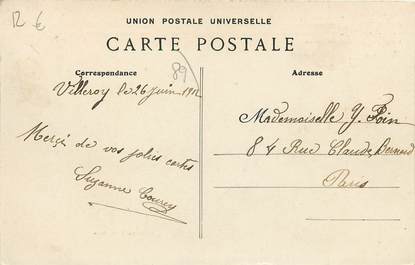 12 €
UNION POSTALE UNIVERSELLE
CARTE POSTALE
Correspondance
89
Adresse
Villeroy le 26 juin
Merçi de vos jolies cartes
Suzanne
Mademoiselle Y. Poin
84 Rue Claude Bernard
Paris